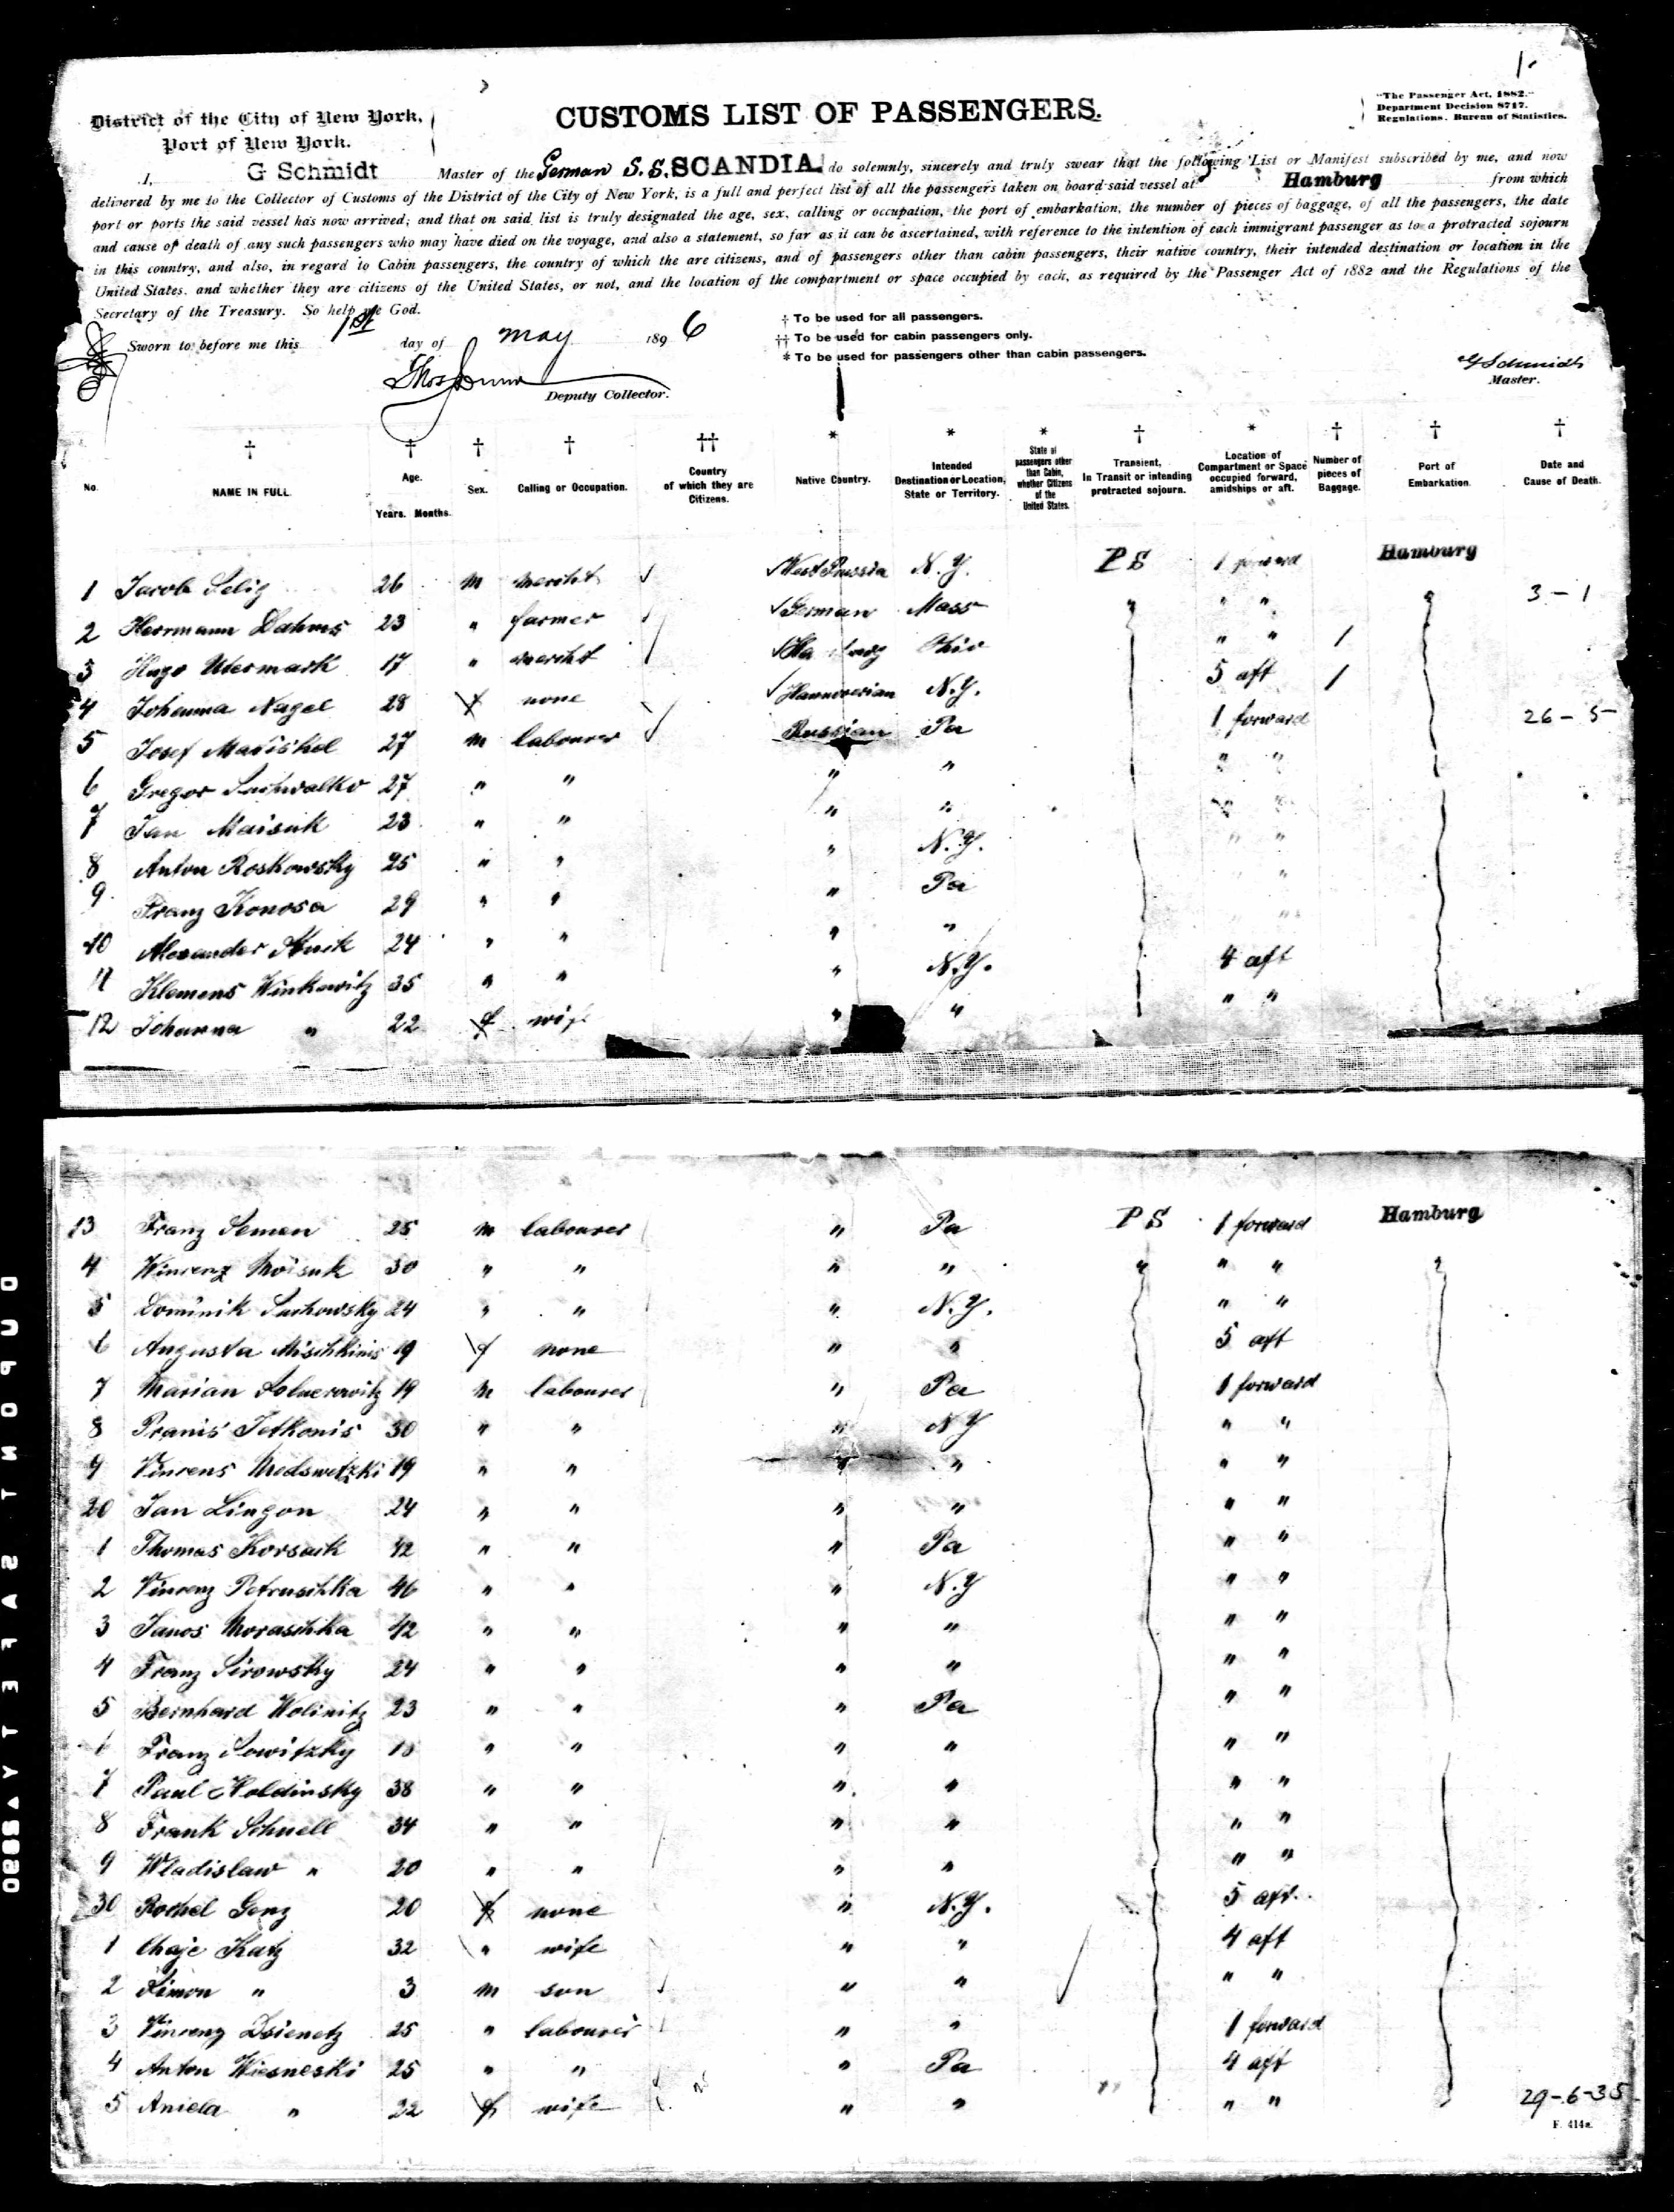 1.
"The Passenger Act, 1882."
Department Decision 8717.
Regulations. Bureau of Statistics.
District of the City of New York,
Port of New York.
CUSTOMS LIST OF PASSENGERS.
I, G Schmidt Master of the German S. S. SCANDIA do solemnly, sincerely and truly swear that the following List or Manifest subscribed by me, and now
delivered by me to the Collector of Customs of the District of the City of New York, is a full and perfect list of all the passengers taken on board said vessel at Hamburg from which
port or ports the said vessel has now arrived; and that on said list is truly designated the age, sex, calling or occupation, the port of embarkation, the number of pieces of baggage, of all the passengers, the date
and cause of death of any such passengers who may have died on the voyage, and also a statement, so far as it can be ascertained, with reference to the intention of each immigrant passenger as to a protracted sojourn
in this country, and also, in regard to Cabin passengers, the country of which the are citizens, and of passengers other than cabin passengers, their native country, their intended destination or location in the
United States, and whether they are citizens of the United States, or not, and the location of the compartment or space occupied by each, as required by the Passenger Act of 1882 and the Regulations of the
Secretary of the Treasury. So help me God.
Sworn to before me this 1st day of May 1896
† To be used for all passengers.
†† To be used for cabin passengers only.
* To be used for passengers other than cabin passengers.
Deputy Collector.
G Schmidt
Master.
† † † † †† * * * † * † † †
No. NAME IN FULL. Age. Years. Months. Sex. Calling or Occupation. Country of which they are Citizens. Native Country. Intended Destination or Location, State or Territory. State of passengers other than Cabin, whether Citizens of the United States. Transient, In Transit or intending protracted sojourn. Location of Compartment or Space occupied forward, amidships or aft. Number of pieces of Baggage. Port of Embarkation. Date and Cause of Death.
1 Jacob Selig 26 m mercht West Prussia N.Y. P S 1 forward Hamburg
2 Herrmann Dahms 23 " farmer German Mass " " " " 3-1
3 Hugo Utermark 17 " mercht Ohio " " 1
4 Johanna Nagel 28 f none Hannoverian N.Y. 5 aft 1
5 Josef 27 m labourer Russian Pa 1 forward 26-5
6 Gregor 27 " " " " " "
7 Jan Maisuk 23 " " " " " "
8 Anton Roskowsky 25 " " " N.Y. " "
9 Franz Konosa 29 " " " Pa "
10 Alexander 24 " " " " "
11 Klemens Winkowitz 35 " " " N.Y. 4 aft
12 Johanna " 22 f wife " " " "
13 Franz Semen 25 m labourer " Pa P S 1 forward Hamburg
4 Winrenz Moisuk 30 " " " " " " " "
5 Dominik Suchowsky 24 " " " N.Y. " "
6 Augusta Mischkinis 19 f none " " 5 aft
7 Marian 19 m labourer " Pa 1 forward
8 Pranis Jetkonis 30 " " " N.Y " "
9 Vinrens Medswetzki 19 " " " " " "
20 Jan Lingon 24 " " " " " "
1 Thomas Korsack 42 " " " Pa " "
2 Vinrenz Petruschka 46 " " " N.Y " "
3 Janos Moraschka 42 " " " " " "
4 Franz Sirowsky 24 " " " " " "
5 Bernhard Wolinitz 23 " " " Pa " "
6 Franz Sowitzky 18 " " " " " "
7 Paul Holdinsky 38 " " " " " "
8 Frank Schnell 34 " " " " " "
9 Wladislaw " 20 " " " " " "
30 Rochel Genz 20 f none " N.Y. 5 aft
1 Chaje Katz 32 " wife " " 4 aft
2 Simon " 3 m son " " " "
3 Vinrenz Dsienetz 25 " labourer " " 1 forward
4 Anton Wiesneski 25 " " " Pa 4 aft
5 Aniela " 22 f wife " " " " 29-6-35
F. 414a.
DUPONT SAFETY